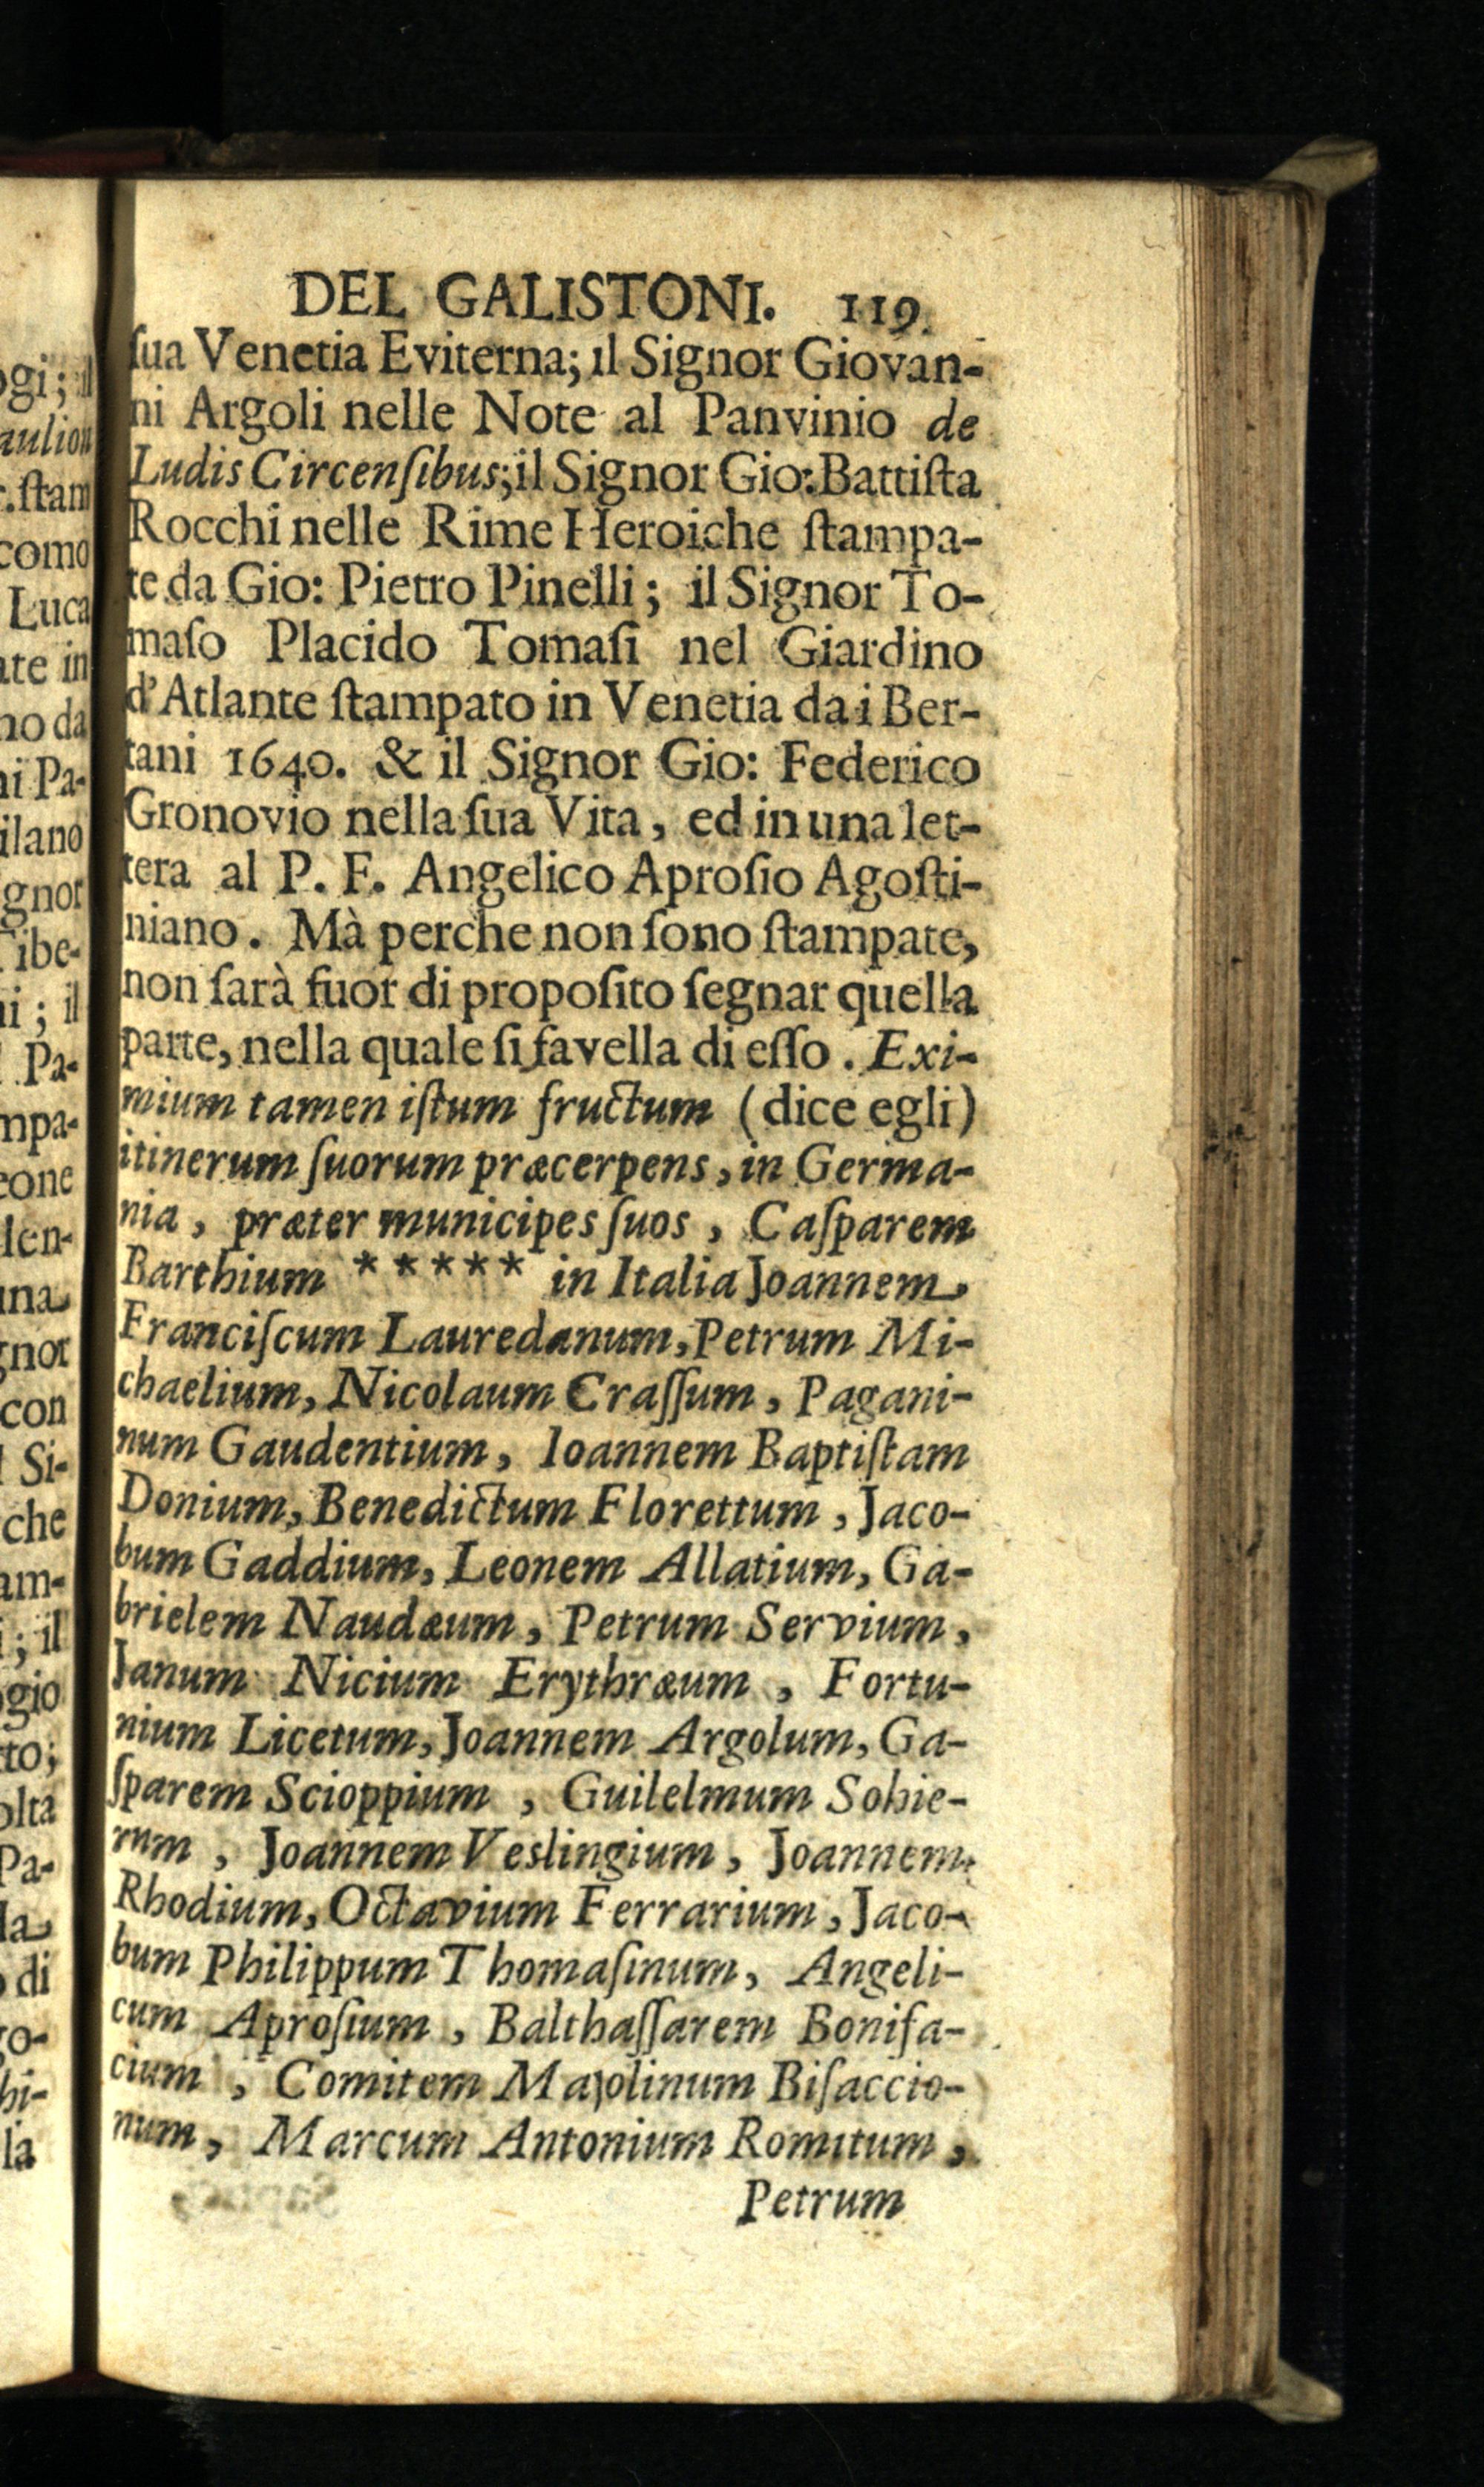 DEL GALISTONI. 119.
ſua Venetia Eviterna; il Signor Giovan-
ni Argoli nelle Note al Panvinio de
Ludis Circenſibus; il Signor Gio: Battiſta
Rocchi nelle Rime Heroiche ſtampa-
te da Gio: Pietro Pinelli; il Signor To-
maſo Placido Tomaſi nel Giardino
d'Atlante ſtampato in Venetia da i Ber-
tani 1640. & il Signor Gio: Federico
Gronovio nella ſua Vita, ed in una let-
tera al P. F. Angelico Aproſio Agoſti-
niano. Mà perche non ſono ſtampate,
non ſarà fuor di propoſito ſegnar quella
parte, nella quale ſi favella di eſſo. Exi-
mium tamen iſtum fructum (dice egli)
itinerum ſuorum præcerpens, in Germa-
nia, præter municipes ſuos, Caſparem
Barthium ***** in Italia Joannem
Franciſcum Lauredanum, Petrum Mi-
chaelium, Nicolaum Craſſum, Pagani-
num Gaudentium, Ioannem Baptiſtam
Donium, Benedictum Florettum, Jaco-
bum Gaddium, Leonem Allatium, Ga-
brielem Naudæum, Petrum Servium,
Janum Nicium Erythræum, Fortu-
nium Licetum, Joannem Argolum, Ga-
ſparem Scioppium, Guilelmum Sohie-
rum, Joannem Veslingium, Joannem
Rhodium, Octavium Ferrarium, Jaco-
bum Philippum Thomaſinum, Angeli-
cum Aproſium, Balthaſſarem Bonifa-
cium, Comitem Majolinum Biſaccio-
num, Marcum Antonium Romitum,
Petrum